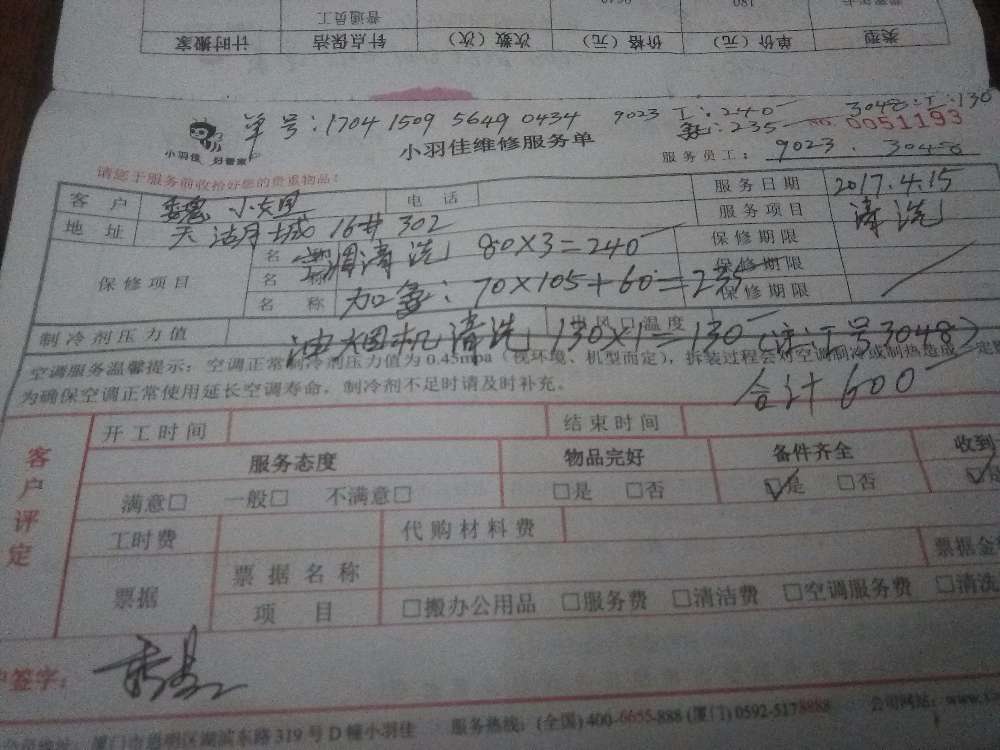 计时搬家 针点保洁 次数（次） 价格（元） 单价（元） 类型
普通员工
180
单号：1704 1509 5649 0434 9023 工：240 3048：工：130
氟：235 NO. 0051193
小羽佳 好管家 小羽佳维修服务单
服务员工：9023 . 3048
请您于服务前收拾好您的贵重物品！
客户 魏小姐 电话 服务日期 2017.4.15
地址 天沽月城 16# 302 服务项目 清洗
保修项目 名称 空调清洗 80X3=240 保修期限
名称 加氟：70X105+60=235 保修期限
名称 保修期限
制冷剂压力值 出风口温度
油烟机清洗 130X1=130（工号3048）
空调服务温馨提示：空调正常制冷剂压力值为0.45mpa（视环境、机型而定），拆装过程会对空调制冷或制热造成一定
为确保空调正常使用延长空调寿命，制冷剂不足时请及时补充。
合计 600
客户评定
开工时间 结束时间
服务态度 物品完好 备件齐全 收到
满意□ 一般□ 不满意□ □是 □否 ☑是 □否 ☑是
工时费 代购材料费
票据 票据名称 票据金
项目 □搬办公用品 □服务费 □清洁费 □空调服务费 □清洗
户签字：
公司地址：厦门市思明区湖滨东路319号D幢小羽佳 服务热线：(全国) 400-6655-888 (厦门) 0592-5178888 公司网站：www.x